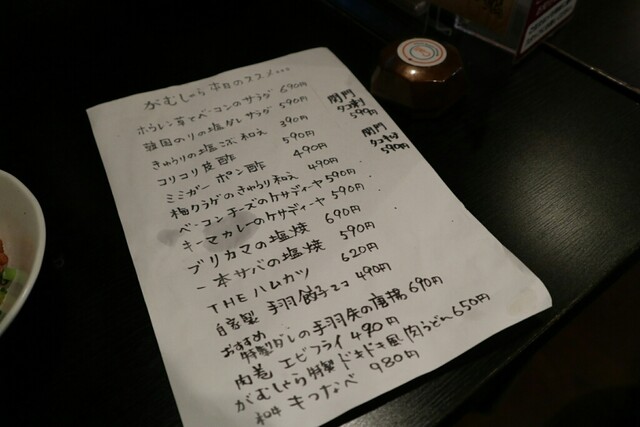 がむしゃら本日のススメ…
ホウレン草とベーコンのサラダ 690円
韓国のりの塩ダレサラダ 590円
きゅうりの塩こぶ和え 390円
コリコリ皮酢 590円
ミミガーポン酢 490円
梅クラゲのきゅうり和え 490円
ベーコンチーズのケサディーヤ 590円
キーマカレーのケサディーヤ 590円
ブリカマの塩焼 690円
一本サバの塩焼 590円
THEハムカツ 620円
自家製 手羽餃子2コ 490円
おすすめ 特製ダレの手羽先の唐揚 690円
肉巻エビフライ 490円
がむしゃら特製ドキドキ風肉うどん 650円
和牛もつなべ 980円
関門
タコ刺
590円
関門
590円